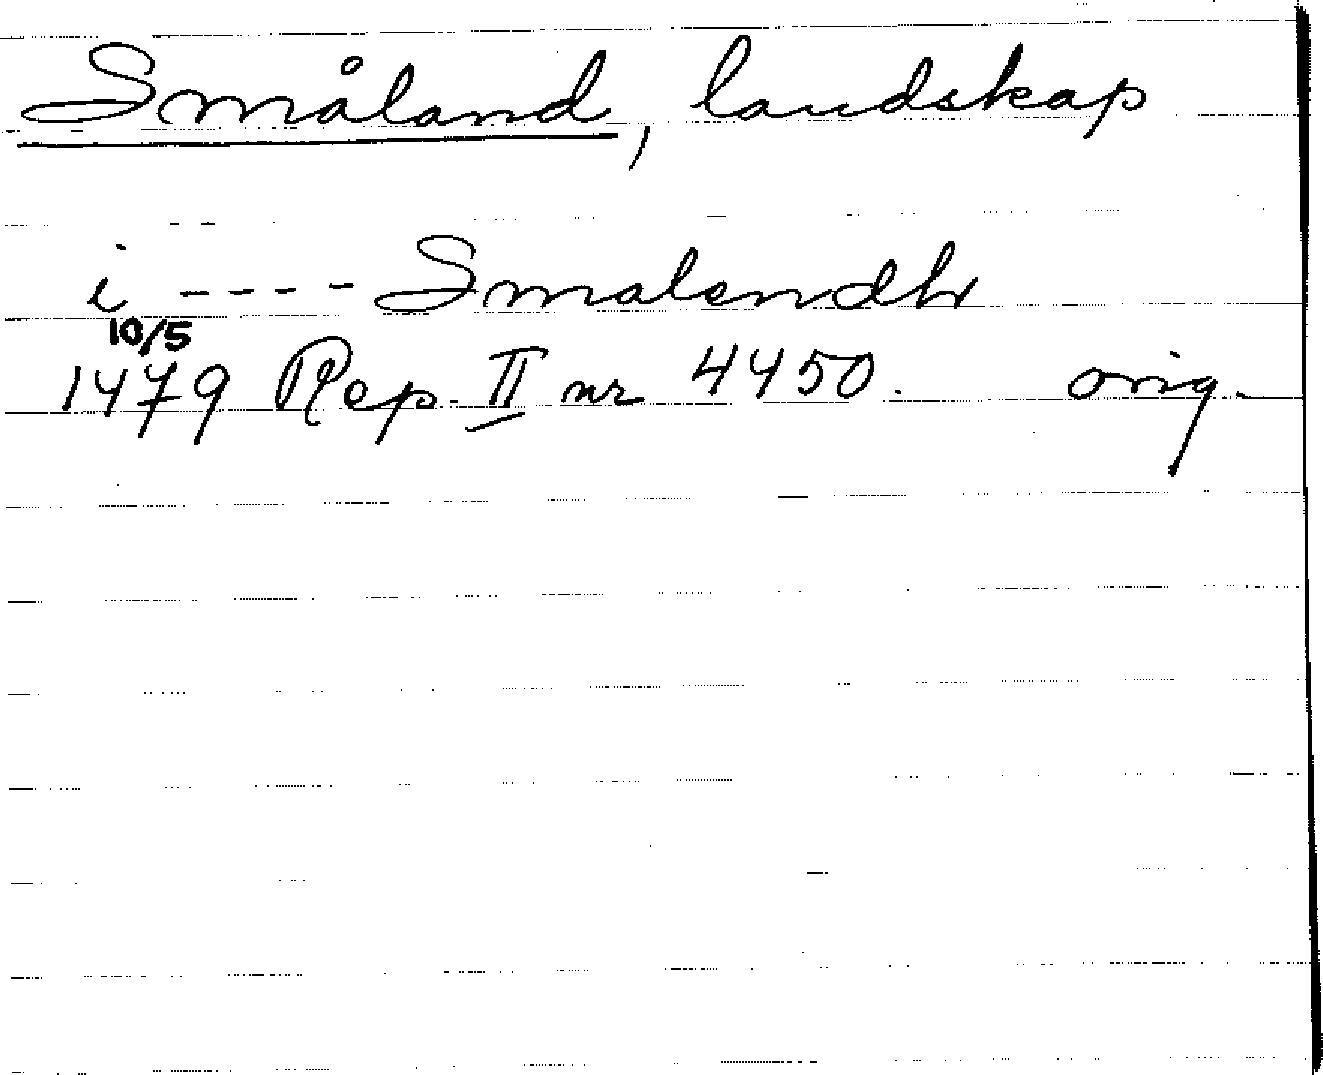 Småland, landskap
i ---- Smalandh
10/5
1479 Rep. II nr 4450. orig.